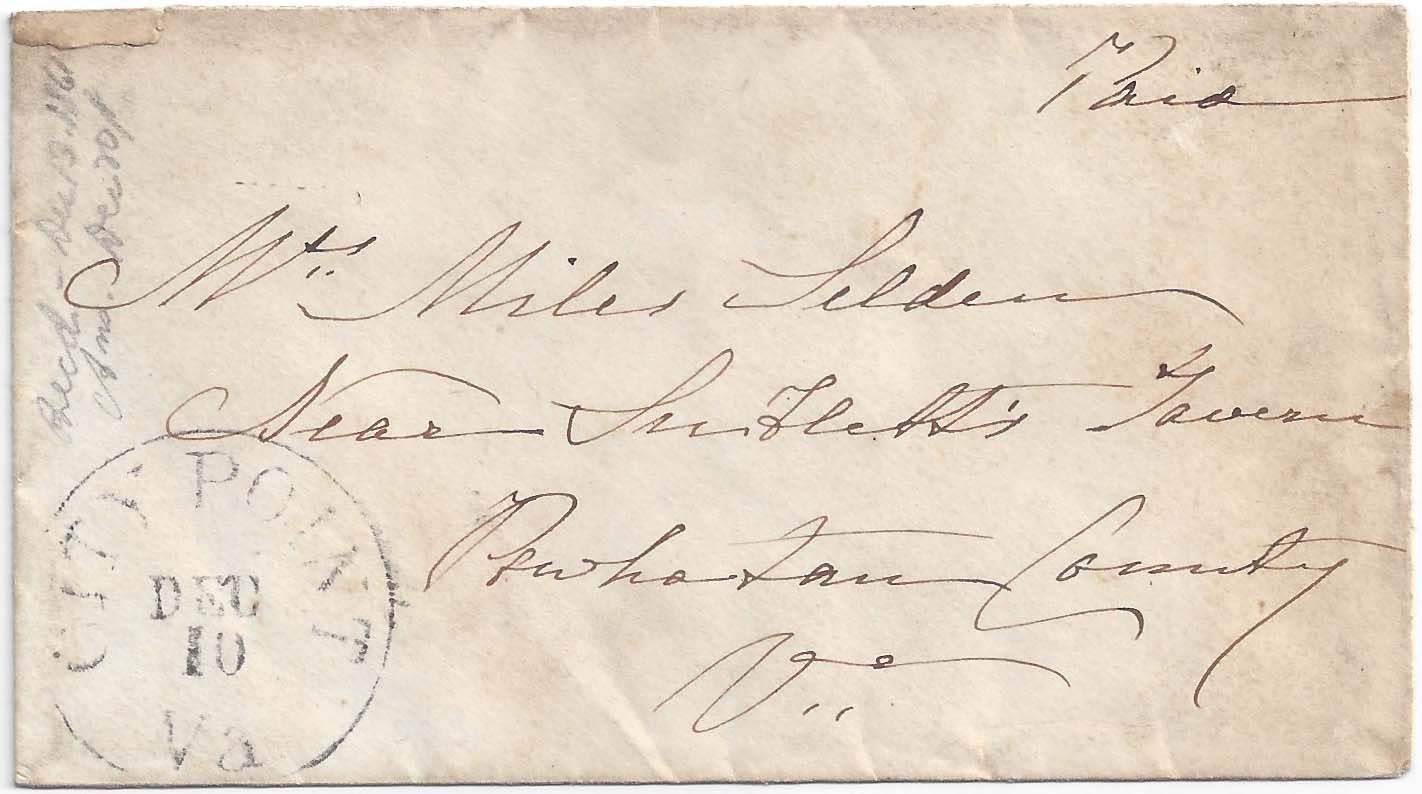 Paid
Mrs. Miles Selden
Near Sublett's Tavern
Powhatan County
Va
CITY POINT
DEC
10
Va
Recd. Dec 13
Ans. Dec 20